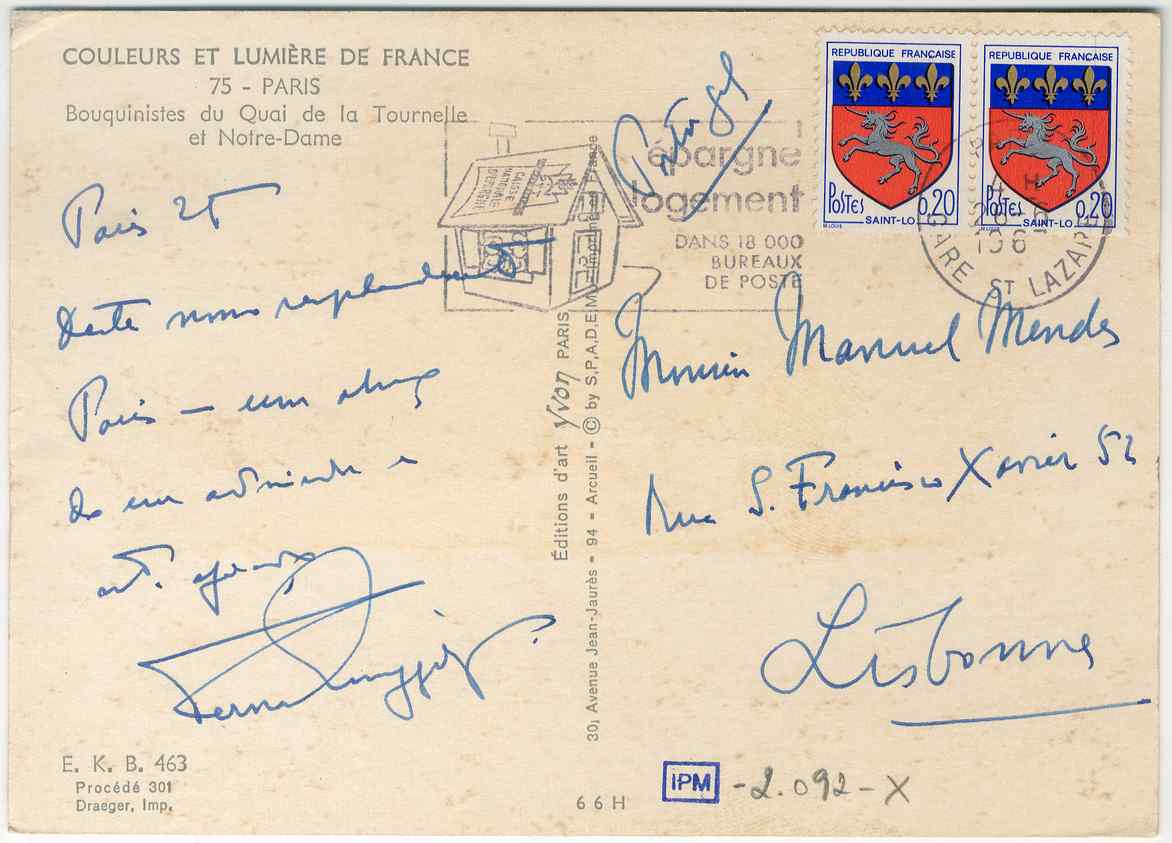 COULEURS ET LUMIÈRE DE FRANCE
75 - PARIS
Bouquinistes du Quai de la Tournelle
et Notre-Dame
Paris 25
Deste nosso resplandecente
Paris — um abraço
do seu admirador e
ami.
Fernan
E. K. B. 463
Procédé 301
Draeger, Imp.
CAISSE
NATIONALE
D'EPARGNE
épargne
logement
DANS 18 000
BUREAUX
DE POSTE
Éditions d'art Yvon PARIS
30, Avenue Jean-Jaurès - 94 - Arcueil - © by S.P.A.D.E.M. - Imprimé en France
66H
REPUBLIQUE FRANÇAISE
POSTES
0,20
SAINT-LO
M. LOUIS
REPUBLIQUE FRANÇAISE
POSTES
0,20
SAINT-LO
M. LOUIS
4 H
26-6
196
GARE ST LAZARE
Portugal
Monsieur Manuel Mendes
Rua S. Francisco Xavier 52
Lisbonne
IPM -2.092-X